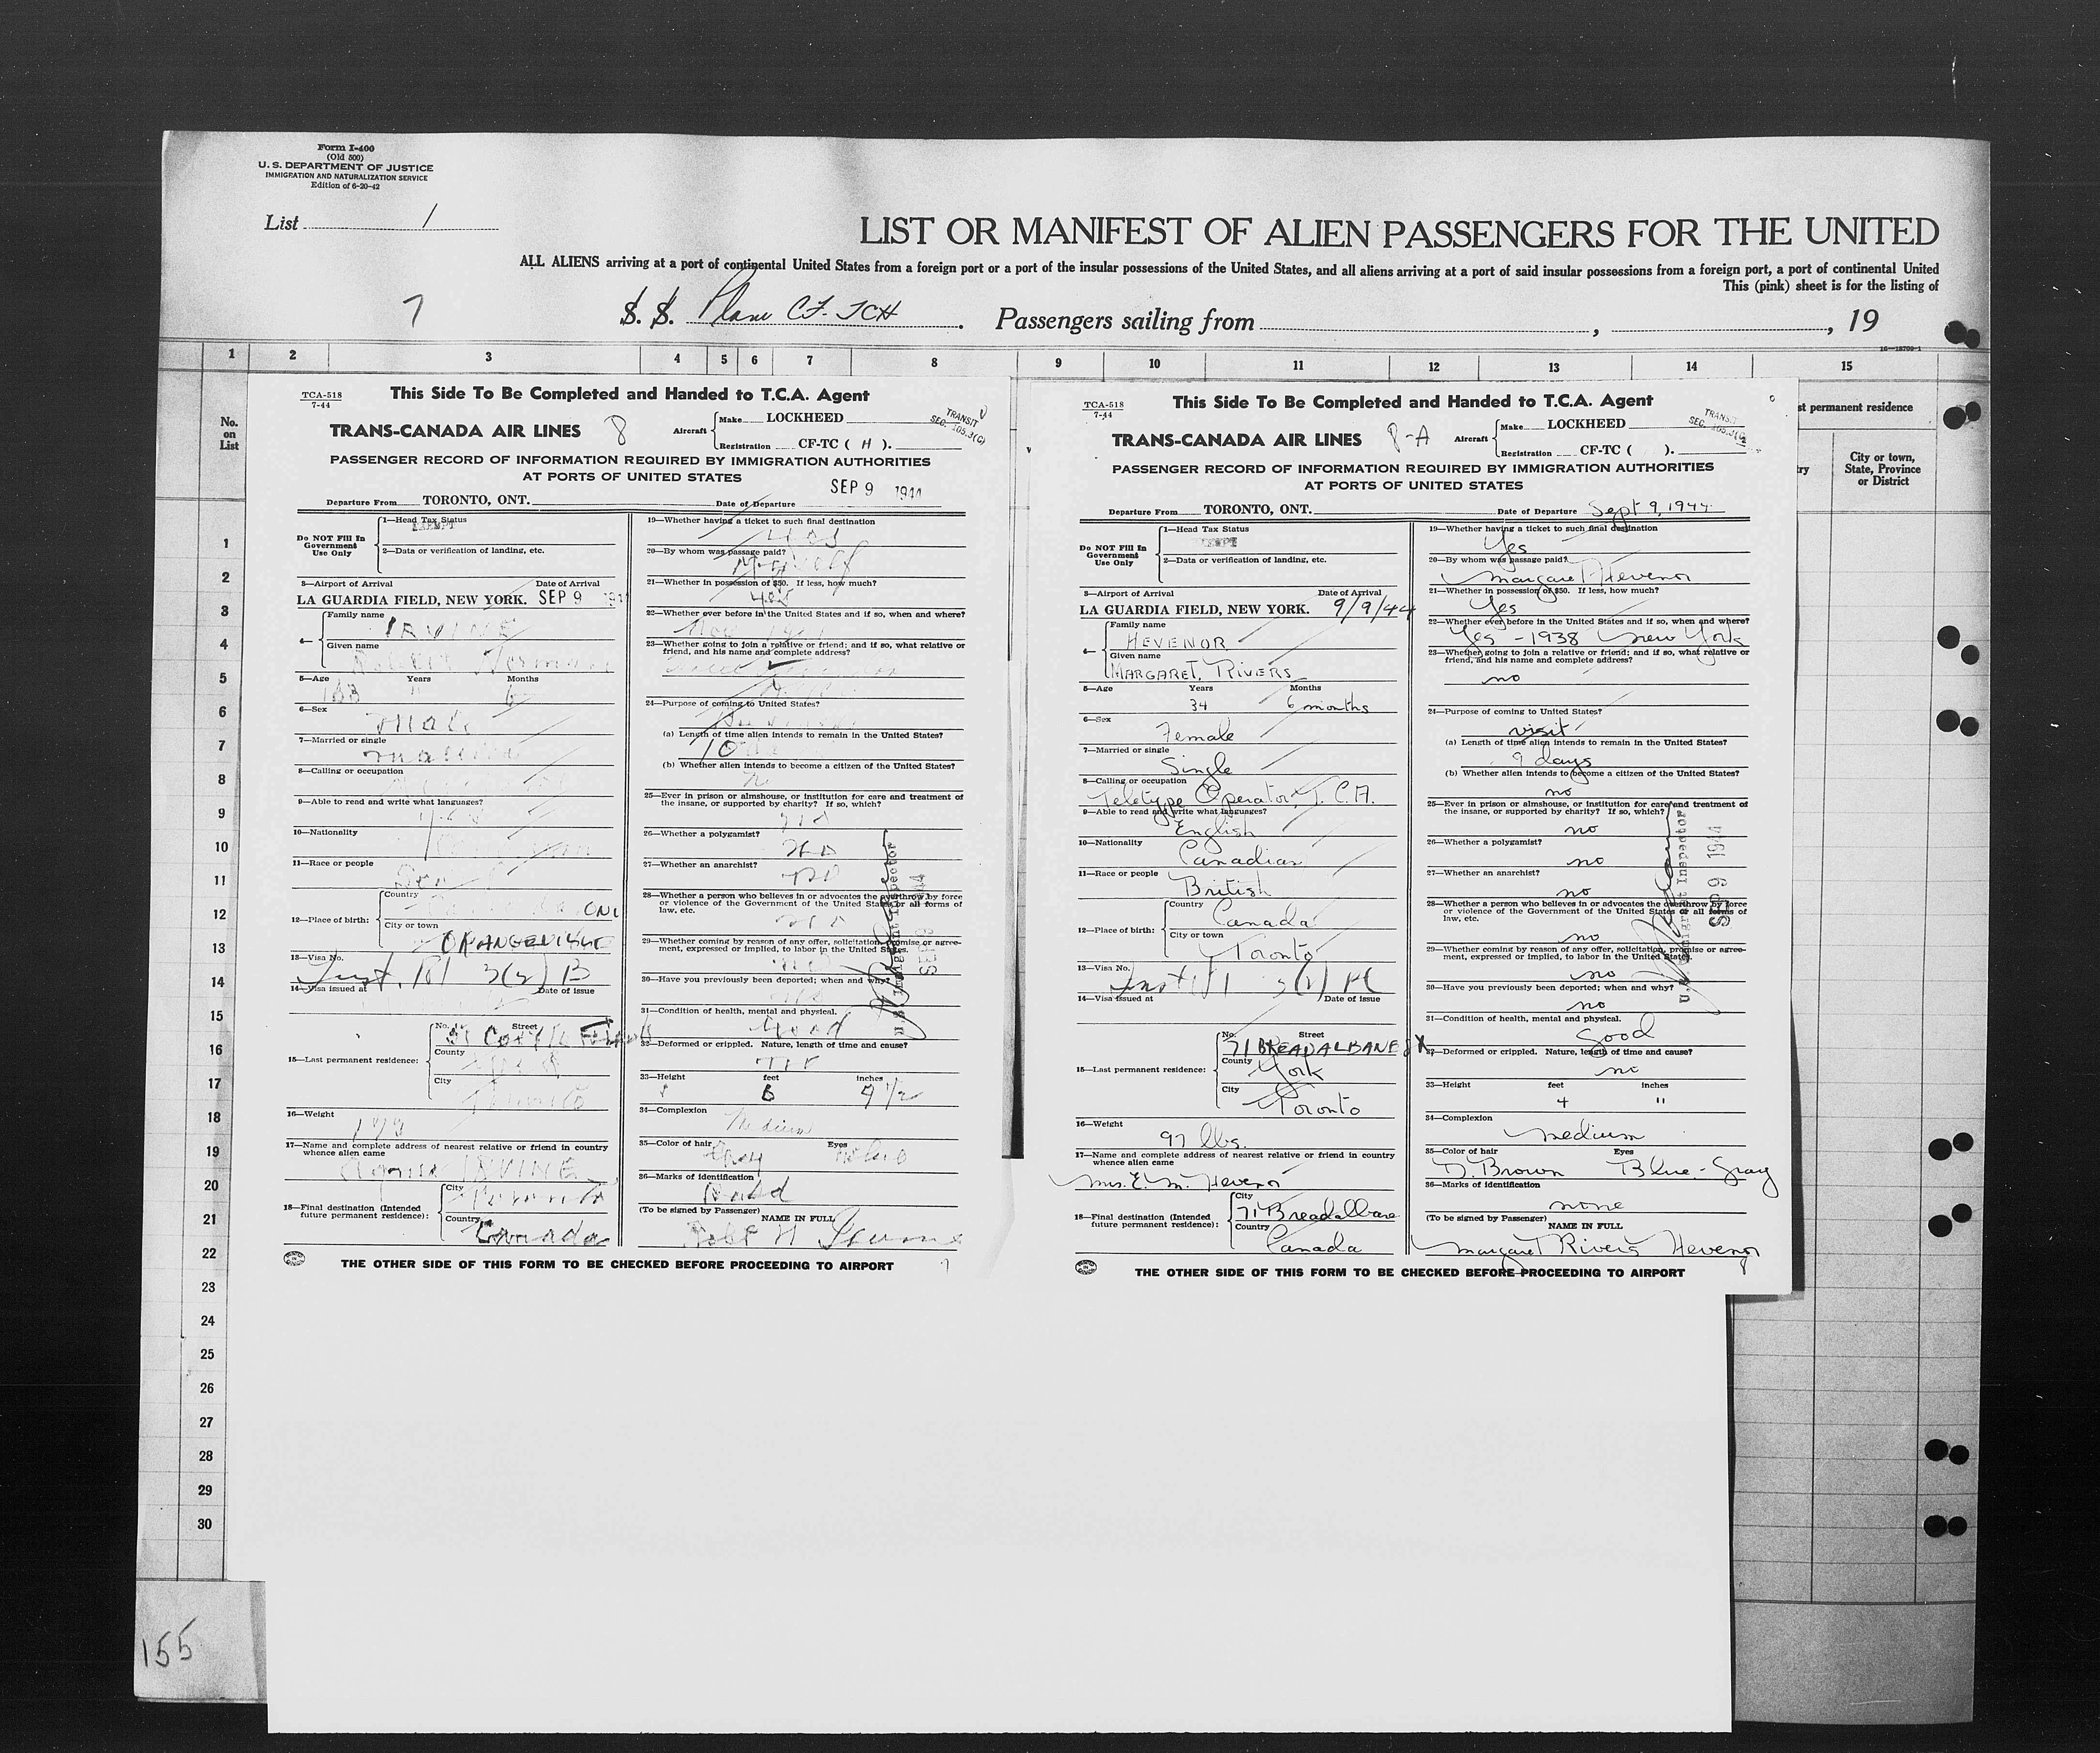 Form I-400
(Old 500)
U. S. DEPARTMENT OF JUSTICE
IMMIGRATION AND NATURALIZATION SERVICE
Edition of 6-20-42
List 1
LIST OR MANIFEST OF ALIEN PASSENGERS FOR THE UNITED
ALL ALIENS arriving at a port of continental United States from a foreign port or a port of the insular possessions of the United States, and all aliens arriving at a port of said insular possessions from a foreign port, a port of continental United
This (pink) sheet is for the listing of
7
S. S. Plane CF-TCH. Passengers sailing from , , 19
1 2 3 4 5 6 7 8 9 10 11 12 13 14 15
No. on List
st permanent residence
City or town, State, Province or District
TCA-518
7-44
This Side To Be Completed and Handed to T.C.A. Agent
TRANS-CANADA AIR LINES 8
Aircraft Make LOCKHEED
Registration CF-TC ( H ).
TRANSIT
SEC. 105.3(G)
PASSENGER RECORD OF INFORMATION REQUIRED BY IMMIGRATION AUTHORITIES
AT PORTS OF UNITED STATES
Departure From TORONTO, ONT. Date of Departure SEP 9 1944
Do NOT Fill In Government Use Only
1—Head Tax Status
EXEMPT
2—Data or verification of landing, etc.
3—Airport of Arrival Date of Arrival
LA GUARDIA FIELD, NEW YORK. SEP 9
4— Family name
IRVINE
Given name
Norman
5—Age Years Months
6
6—Sex
Male
7—Married or single
Married
8—Calling or occupation
9—Able to read and write what languages?
10—Nationality
11—Race or people
12—Place of birth: Country
ONT
City or town
ORANGEVILLE
13—Visa No.
3(2) B
14—Visa issued at Date of issue
15—Last permanent residence: No. Street
County
City
Toronto
16—Weight
17—Name and complete address of nearest relative or friend in country whence alien came
Agnes IRVINE
18—Final destination (Intended future permanent residence): City
Toronto
Country
Canada
19—Whether having a ticket to such final destination
Yes
20—By whom was passage paid?
Myself
21—Whether in possession of $50. If less, how much?
Yes
22—Whether ever before in the United States and if so, when and where?
23—Whether going to join a relative or friend; and if so, what relative or friend, and his name and complete address?
24—Purpose of coming to United States?
Business
(a) Length of time alien intends to remain in the United States?
(b) Whether alien intends to become a citizen of the United States?
No
25—Ever in prison or almshouse, or institution for care and treatment of the insane, or supported by charity? If so, which?
no
26—Whether a polygamist?
no
27—Whether an anarchist?
no
28—Whether a person who believes in or advocates the overthrow by force or violence of the Government of the United States or all forms of law, etc.
no
29—Whether coming by reason of any offer, solicitation, promise or agreement, expressed or implied, to labor in the United States.
no
30—Have you previously been deported; when and why?
no
31—Condition of health, mental and physical.
Good
32—Deformed or crippled. Nature, length of time and cause?
33—Height feet inches
9 1/2
34—Complexion
Medium
35—Color of hair Eyes
Grey Blue
36—Marks of identification
(To be signed by Passenger) NAME IN FULL
Robt H Irvine
U.S. Immigrant Inspector
THE OTHER SIDE OF THIS FORM TO BE CHECKED BEFORE PROCEEDING TO AIRPORT
TCA-518
7-44
This Side To Be Completed and Handed to T.C.A. Agent
TRANS-CANADA AIR LINES 8-A
Aircraft Make LOCKHEED
Registration CF-TC ( ).
TRANSIT
SEC. 105.3(G)
PASSENGER RECORD OF INFORMATION REQUIRED BY IMMIGRATION AUTHORITIES
AT PORTS OF UNITED STATES
Departure From TORONTO, ONT. Date of Departure Sept 9, 1944
Do NOT Fill In Government Use Only
1—Head Tax Status
2—Data or verification of landing, etc.
3—Airport of Arrival Date of Arrival
LA GUARDIA FIELD, NEW YORK. 9/9/44
4— Family name
HEVENOR
Given name
MARGARET, RIVERS
5—Age Years Months
34 6 months
6—Sex
Female
7—Married or single
Single
8—Calling or occupation
Teletype Operator, T.C.A.
9—Able to read and write what languages?
English
10—Nationality
Canadian
11—Race or people
British
12—Place of birth: Country
Canada
City or town
Toronto
13—Visa No.
14—Visa issued at Date of issue
15—Last permanent residence: No. Street
71 BREADALBANE St
County
York
City
Toronto
16—Weight
97 lbs.
17—Name and complete address of nearest relative or friend in country whence alien came
Mrs. E. M. Hevenor
18—Final destination (Intended future permanent residence): City
71 Breadalbane
Country
Canada
19—Whether having a ticket to such final destination
Yes
20—By whom was passage paid?
Margaret Hevenor
21—Whether in possession of $50. If less, how much?
Yes
22—Whether ever before in the United States and if so, when and where?
Yes - 1938 New York
23—Whether going to join a relative or friend; and if so, what relative or friend, and his name and complete address?
no
24—Purpose of coming to United States?
visit
(a) Length of time alien intends to remain in the United States?
9 days
(b) Whether alien intends to become a citizen of the United States?
no
25—Ever in prison or almshouse, or institution for care and treatment of the insane, or supported by charity? If so, which?
no
26—Whether a polygamist?
no
27—Whether an anarchist?
no
28—Whether a person who believes in or advocates the overthrow by force or violence of the Government of the United States or all forms of law, etc.
no
29—Whether coming by reason of any offer, solicitation, promise or agreement, expressed or implied, to labor in the United States.
no
30—Have you previously been deported; when and why?
no
31—Condition of health, mental and physical.
Good
32—Deformed or crippled. Nature, length of time and cause?
no
33—Height feet inches
4 11
34—Complexion
medium
35—Color of hair Eyes
D. Brown Blue-Gray
36—Marks of identification
none
(To be signed by Passenger) NAME IN FULL
Margaret Rivers Hevenor
U.S. Immigrant Inspector
SEP 9 1944
THE OTHER SIDE OF THIS FORM TO BE CHECKED BEFORE PROCEEDING TO AIRPORT
1
2
3
4
5
6
7
8
9
10
11
12
13
14
15
16
17
18
19
20
21
22
23
24
25
26
27
28
29
30
155